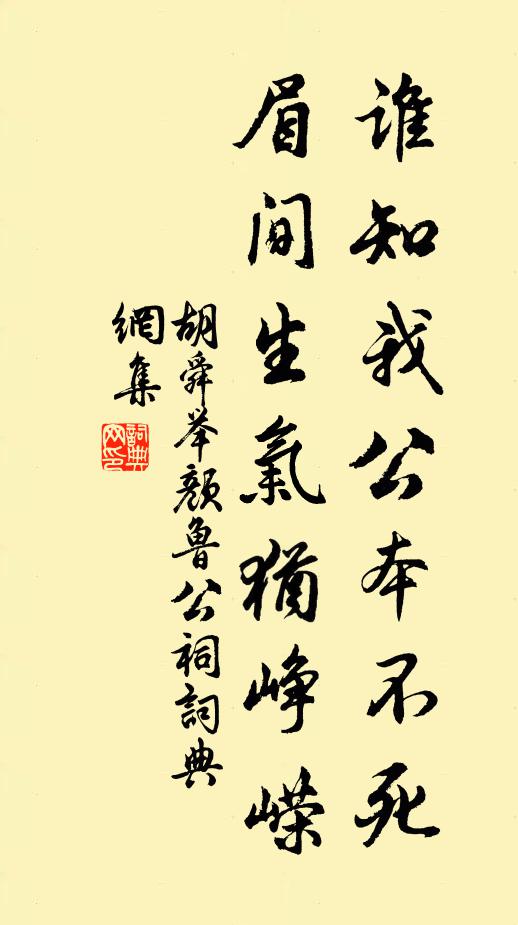 谁知我公本不死
眉间生氣猶峥嵘
胡舜举颜魯公祠詞典
網集
詞典
网印